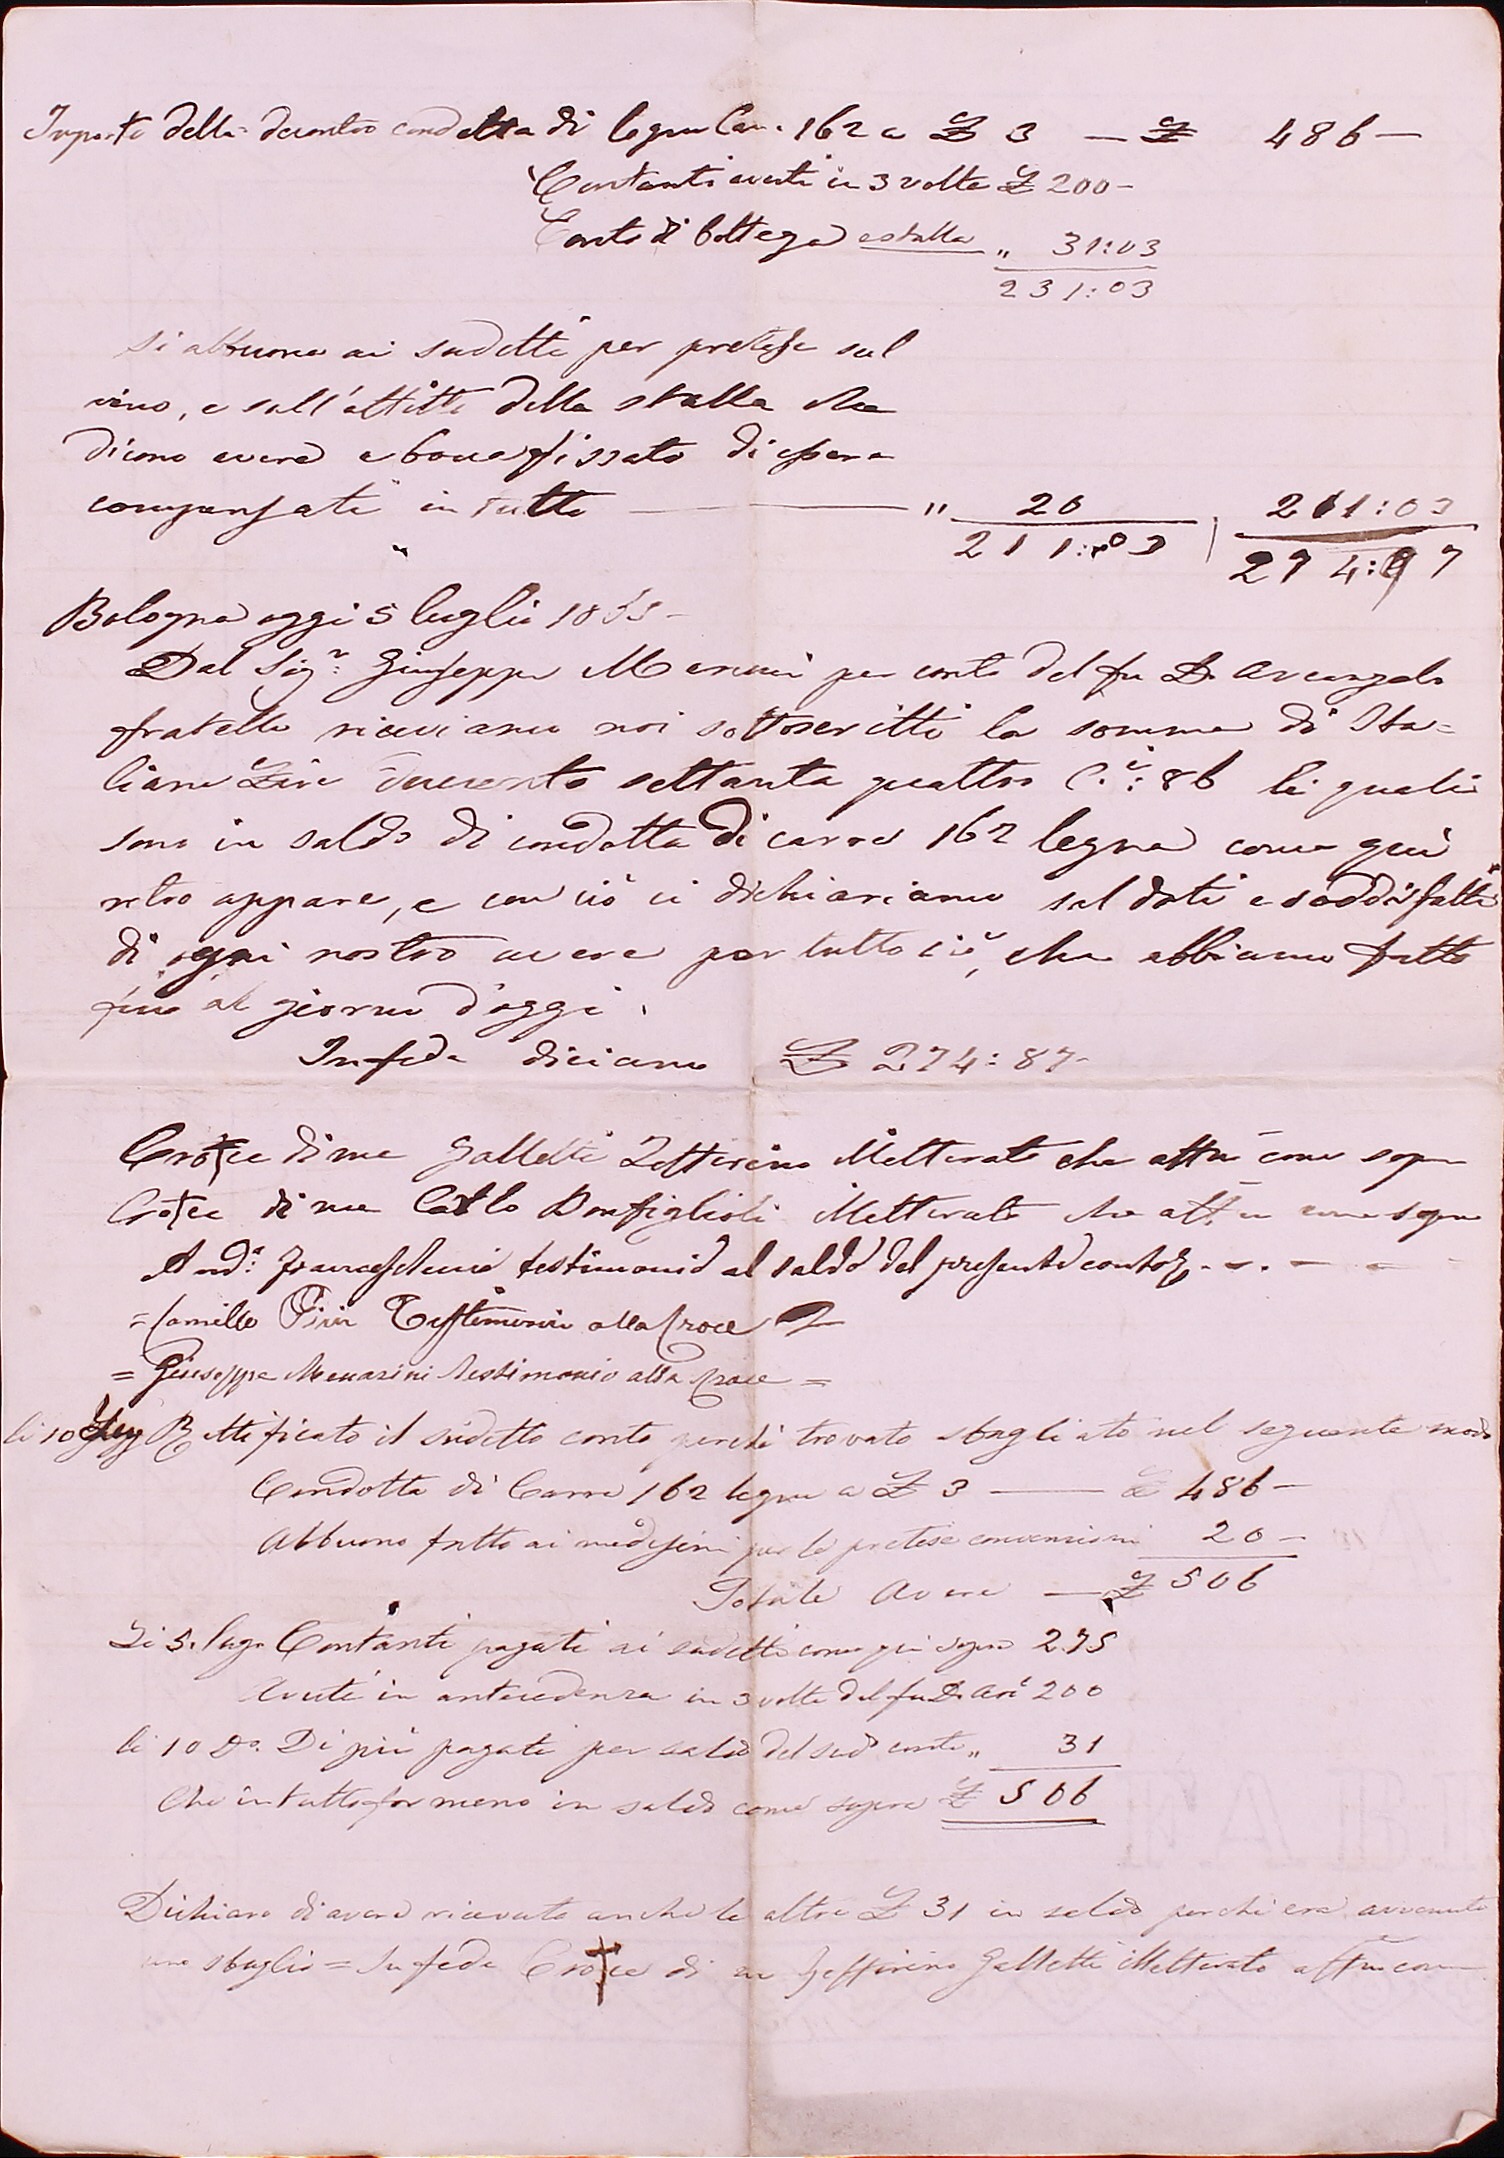 Importo della decontro condotta di legna Carra 162 a £ 3 — £ 486 —
Contanti avuti in 3 volte £ 200 —
Conto di bottega e stalla „ 31:03
231:03
Si abbuona ai sudetti per pretese sul
vino, e sull'affitto della stalla che
dicono avere a bove fissato di essere
compensati in tutto — „ 20 211:03
211:03 274:97
Bologna oggi 5 luglio
Dal Sigr: Giuseppe per conto del fu Dr Arcangelo
fratello riceviamo noi sottoscritti la somma di Ita=
liane Lire duecento settanta quattro C.i: 86 le quali
sono in saldo di condotta di carra 162 legna come qui
retro appare, e con ciò ci dichiariamo saldati e soddisfatti
di ogni nostro avere per tutto ciò, che abbiamo fatto
fino al giorno d'oggi.
In fede diciamo £ 274:87 -
Croce di me Galletti Zeffirino Illetterato che affa come sopra
Croce di me Carlo Bonfiglioli Illetterato che affa come sopra
testimonio al saldo del presente conto
= Camillo Pini Testimonio alla Croce
= Giuseppe Menarini testimonio alla Croce =
li 10 Rettificato il sudetto conto perchè trovato sbagliato nel seguente modo
Condotta di Carra 162 legna a £ 3 — £ 486 —
Abbuono fatto ai medesimi per le pretese convenzioni 20 —
Totale Avere — £ 506
Li 5. Lug. Contanti pagati ai sudetti come qui sopra 275
Avuti in antecedenza in 3 volte dal fu Dr Arc 200
li 10 Do. Di più pagati per saldo del sudo conto „ 31
Che in tutto formano in saldo come sopra £ 506
Dichiaro di avere ricevuto anche le altre £ 31 in saldo perchè era avvenuto
uno sbaglio = In fede Croce di me Zeffirino Galletti Illetterato affa come